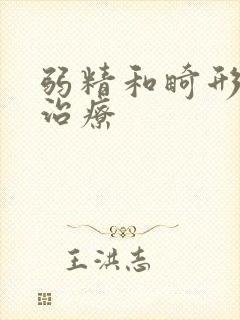 弱精和畸形
治療
王洪志